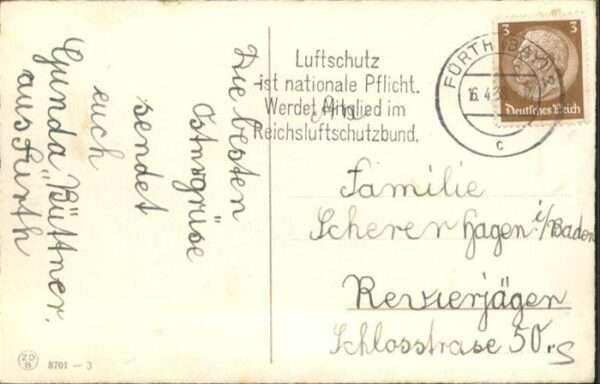 Die besten
Ostergrüse
sendet
euch
Gunda Büttner.
aus Fürth
Luftschutz
ist nationale Pflicht.
Werdet Mitglied im
Reichsluftschutzbund.
FÜRTH (BAY) 2
16.4.38
c
3 3
Deutsches Reich
An
Familie
Scherer Hagen i/Baden
Revierjägen
Schlosstrase 50.
8701 - 3